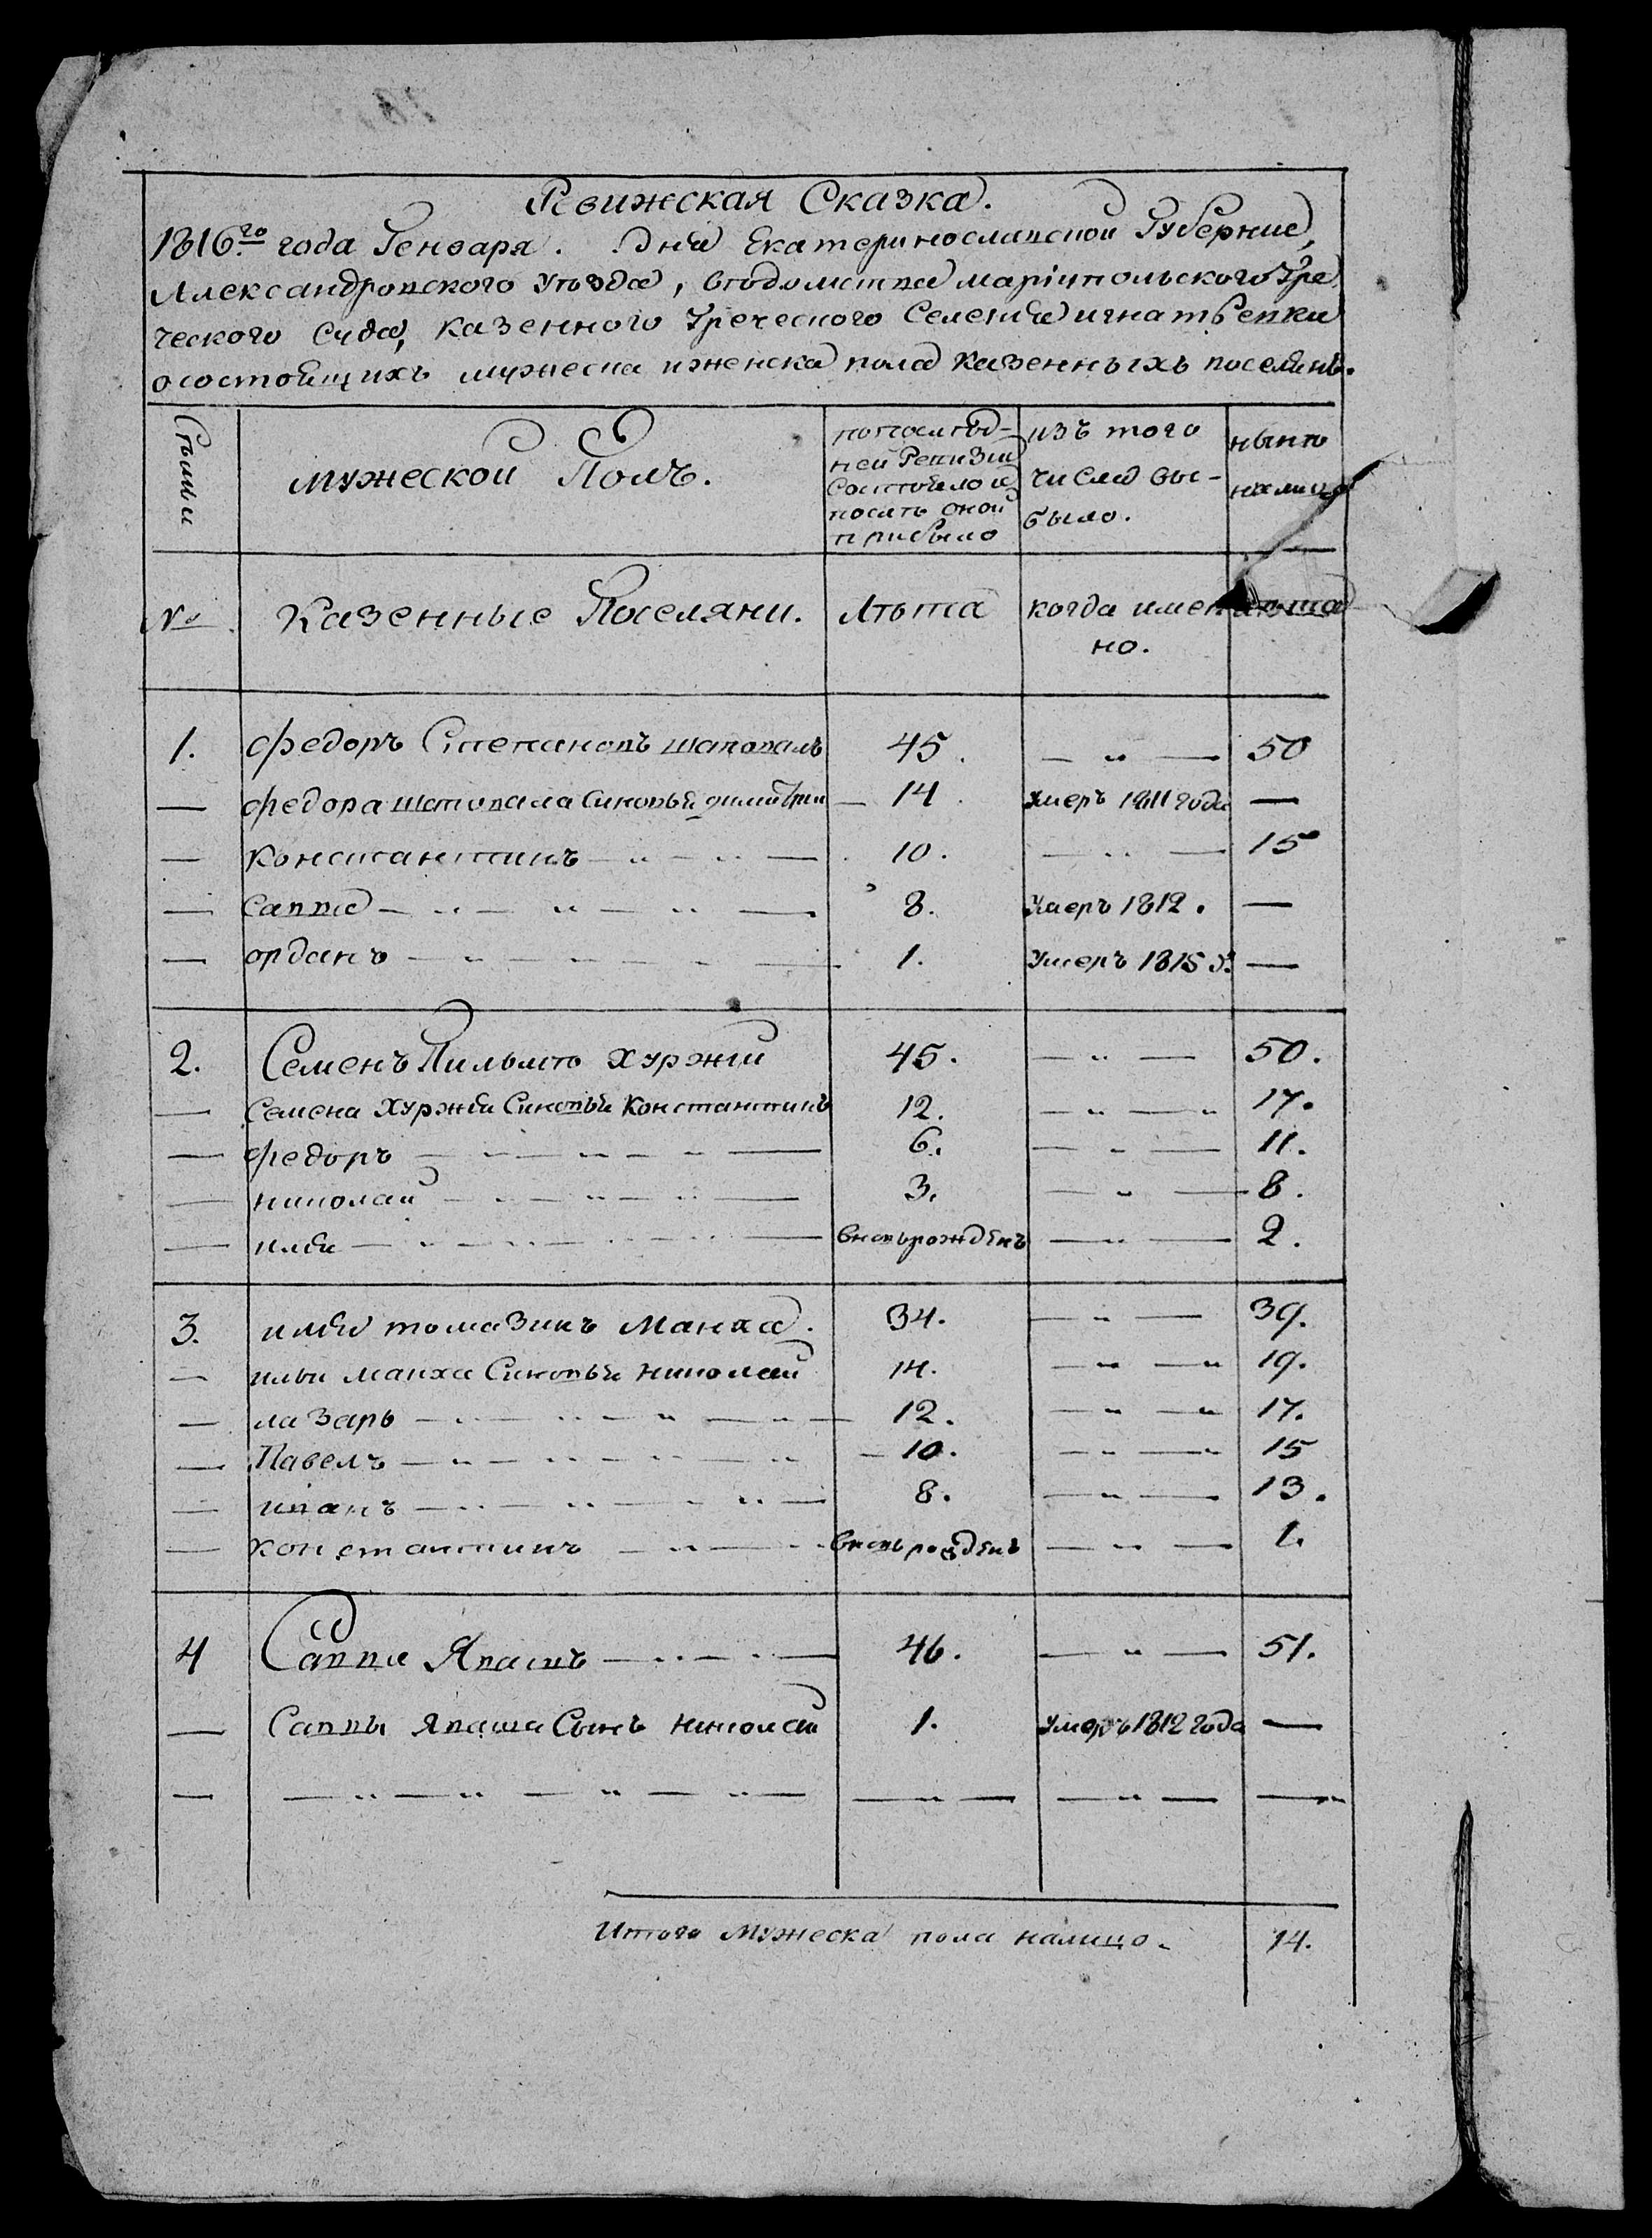 Ревижская Сказка.
1816го года Генваря . Дня Екатеринославской Губернии,
Александровского Уѣзда, вѣдомства маріупольского Гре
ческого Суда, казенного Греческого Селения игнатьевки
о состоящихъ мужеска и женска пола казенныхъ поселянъ.
Семьи
мужеской Полъ.
по послѣд-
ней Ревизии
Состояло и
послѣ оной
прибыло
изъ того
числа вы-
было.
нынѣ
налицо
№ Казенные Поселяни. Лѣта когда имен Лѣта
но.
1. федоръ Степановъ шаповалъ 45. — „ — 50
— федора шаповала Синовья димитрии — 14. Умеръ 1811 года —
— константинъ — „ — „ — 10. — „ — 15
— савва — „ — „ — „ — 8. Умеръ 1812. —
— орданъ — „ — „ — „ — 1. Умеръ 1815 г. —
2. Семенъ Хуржии 45. — „ — 50.
— Семена Хуржия Синовья Константинъ 12. — „ — „ 17.
— федоръ — „ — „ — „ — 6. — „ — 11.
— николаи — „ — „ — „ — 3. — „ — 8.
— илья — „ — „ — „ — вновьрожденъ — „ — 2.
3. илья томазинъ Манха. 34. — „ — 39.
— ильи манха Синовья николаи 14. — „ — „ 19.
— лазарь — „ — „ — „ — „ — 12. — „ — „ 17.
— Павелъ — „ — „ — „ — „ — 10. — „ — „ 15
— иванъ — „ — „ — „ — 8. — „ — 13.
— константинъ — „ — „ вновьрожденъ — „ — 1.
4 Савва Япашъ — „ — „ — 46. — „ — 51.
— Саввы Япаша Сынъ николаи 1. умеръ 1812 года —
— — „ — „ — „ — „ — — „ — — „ — — „
Итого Мужеска пола налицо. 14.